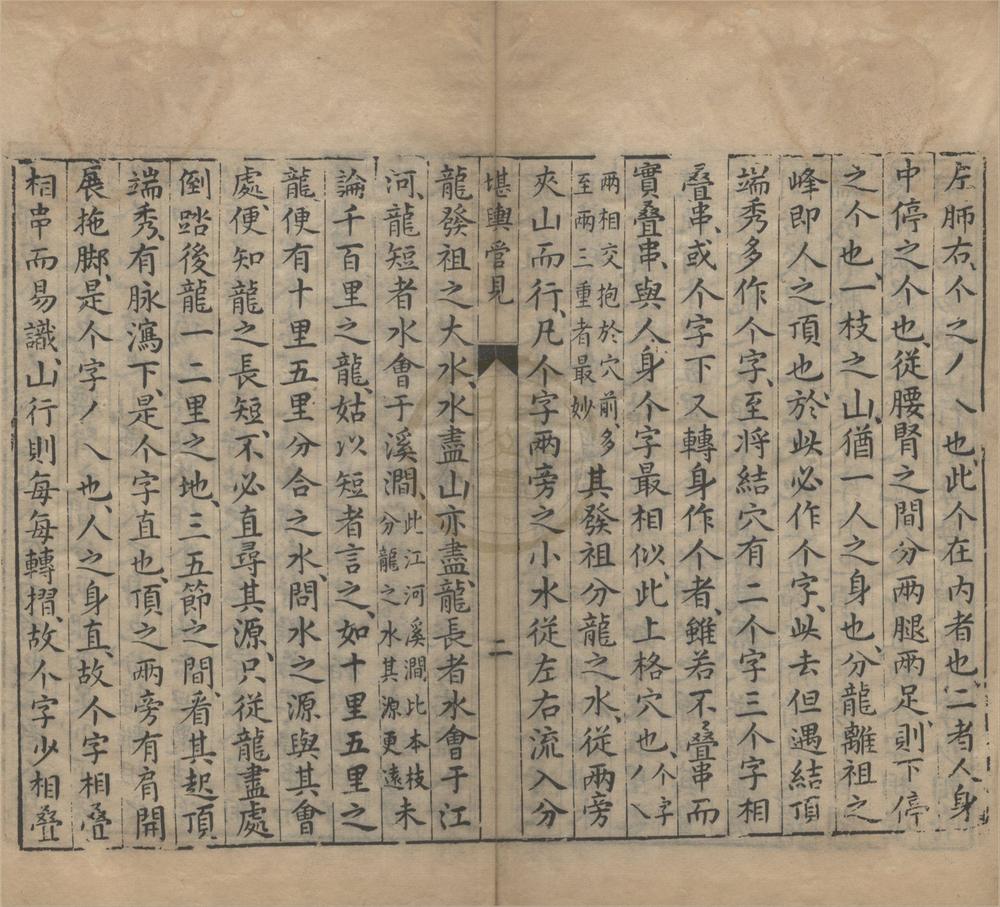 左肺右个之丿乀也此个在内者也二者人身
中停之个也從腰腎之間分两腿两足則下停
之个也一枝之山猶一人之身也分龍離祖之
峰即人之頂也於此必作个字此去但遇結頂
端秀多作个字至將結穴有二个字三个字相
叠串或个字下又轉身作个者雖若不叠串而
實叠串與人身个字最相似此上格穴也个字丿乀
两相交抱於穴前多至两三重者最妙其發祖分龍之水從两旁
夾山而行凡个字两旁之小水從左右流入分
堪輿管見 二
龍發祖之大水水盡山亦盡龍長者水會于江
河龍短者水會于溪澗此江河溪澗比本枝分龍之水其源更遠未
論千百里之龍姑以短者言之如十里五里之
龍便有十里五里分合之水問水之源與其會
處便知龍之長短不必直尋其源只從龍盡處
倒踏後龍一二里之地三五節之間看其起頂
端秀有脉瀉下是个字直也頂之两旁有肩開
展拖脚是个字丿乀也人之身直故个字相叠
相串而易識山行則每每轉摺故个字少相叠